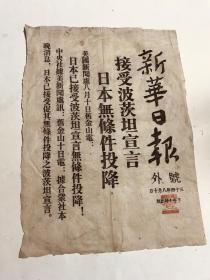 新華日報
號外
三十四年八月十日
接受波茨坦宣言
日本無條件投降
美國新聞處八月十日舊金山電：
日本已接受波茨坦宣言無條件投降！
中央社據美新聞處訊：舊金山十日電：據合眾社本
晚消息：日本已接受促其無條件投降之波茨坦宣言。